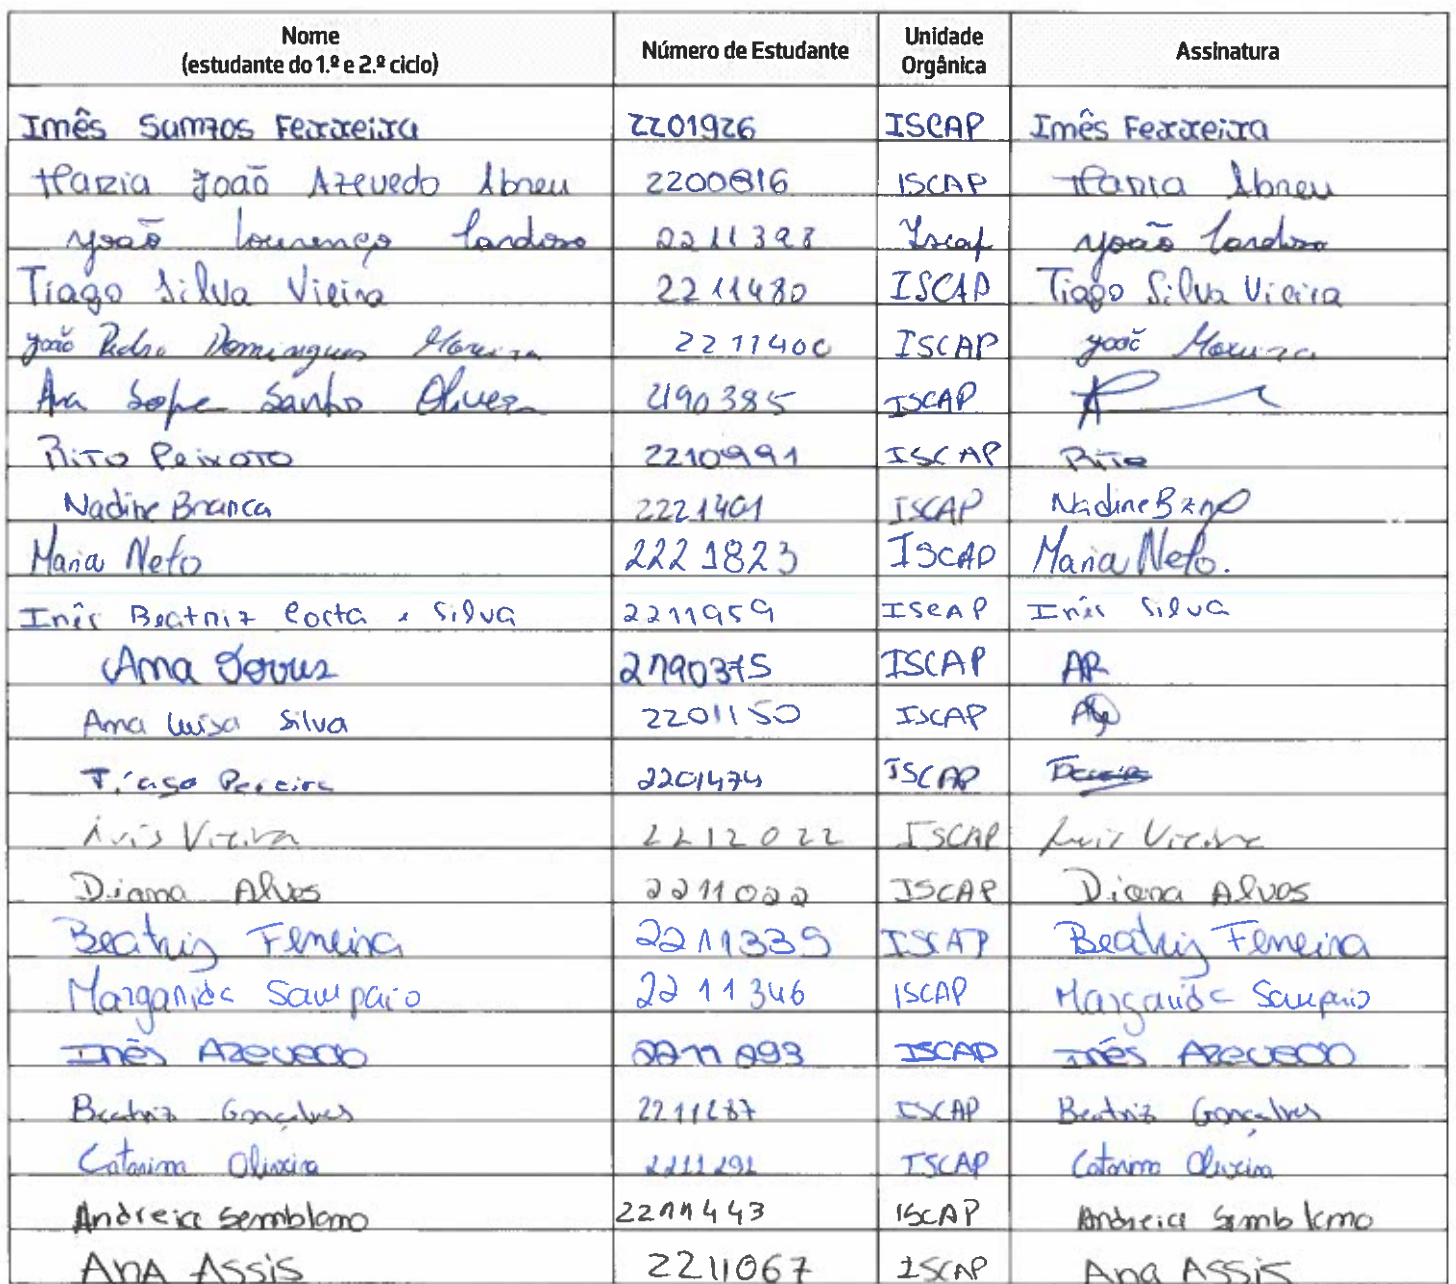 Nome (estudante do 1.º e 2.º ciclo) Número de Estudante Unidade Orgânica Assinatura
Inês Santos Ferreira 2201926 ISCAP Inês Ferreira
Maria João Azevedo Abreu 2200816 ISCAP Maria Abreu
João Lourenço Cardoso 2211398 Iscap João Cardoso
Tiago Silva Vieira 2211480 ISCAP Tiago Silva Vieira
João Pedro Domingues Moreira 2211400 ISCAP João Moreira
Ana Sofia Santos Oliveira 2190385 ISCAP
Rita Peixoto 2210991 ISCAP Rita
Nadine Branca 2221401 ISCAP Nadine
Maria Neto 2221823 ISCAP Maria Neto.
Inês Beatriz Costa e Silva 2211959 ISCAP Inês Silva
Ana 2190375 ISCAP AR
Ana Luísa Silva 2201150 ISCAP
Tiago Pereira 2201474 ISCAP
Luís Vieira 2212022 ISCAP Luís Vieira
Diana Alves 2211022 ISCAP Diana Alves
Beatriz Ferreira 2211339 ISCAP Beatriz Ferreira
Margarida Sampaio 2211346 ISCAP Margarida Sampaio
Inês Azevedo 2211093 ISCAP Inês Azevedo
Beatriz Gonçalves 2211287 ISCAP Beatriz Gonçalves
Catarina Oliveira 2211292 ISCAP Catarina Oliveira
Andreia Semblano 2211443 ISCAP Andreia Semblano
Ana Assis 2211067 ISCAP Ana Assis